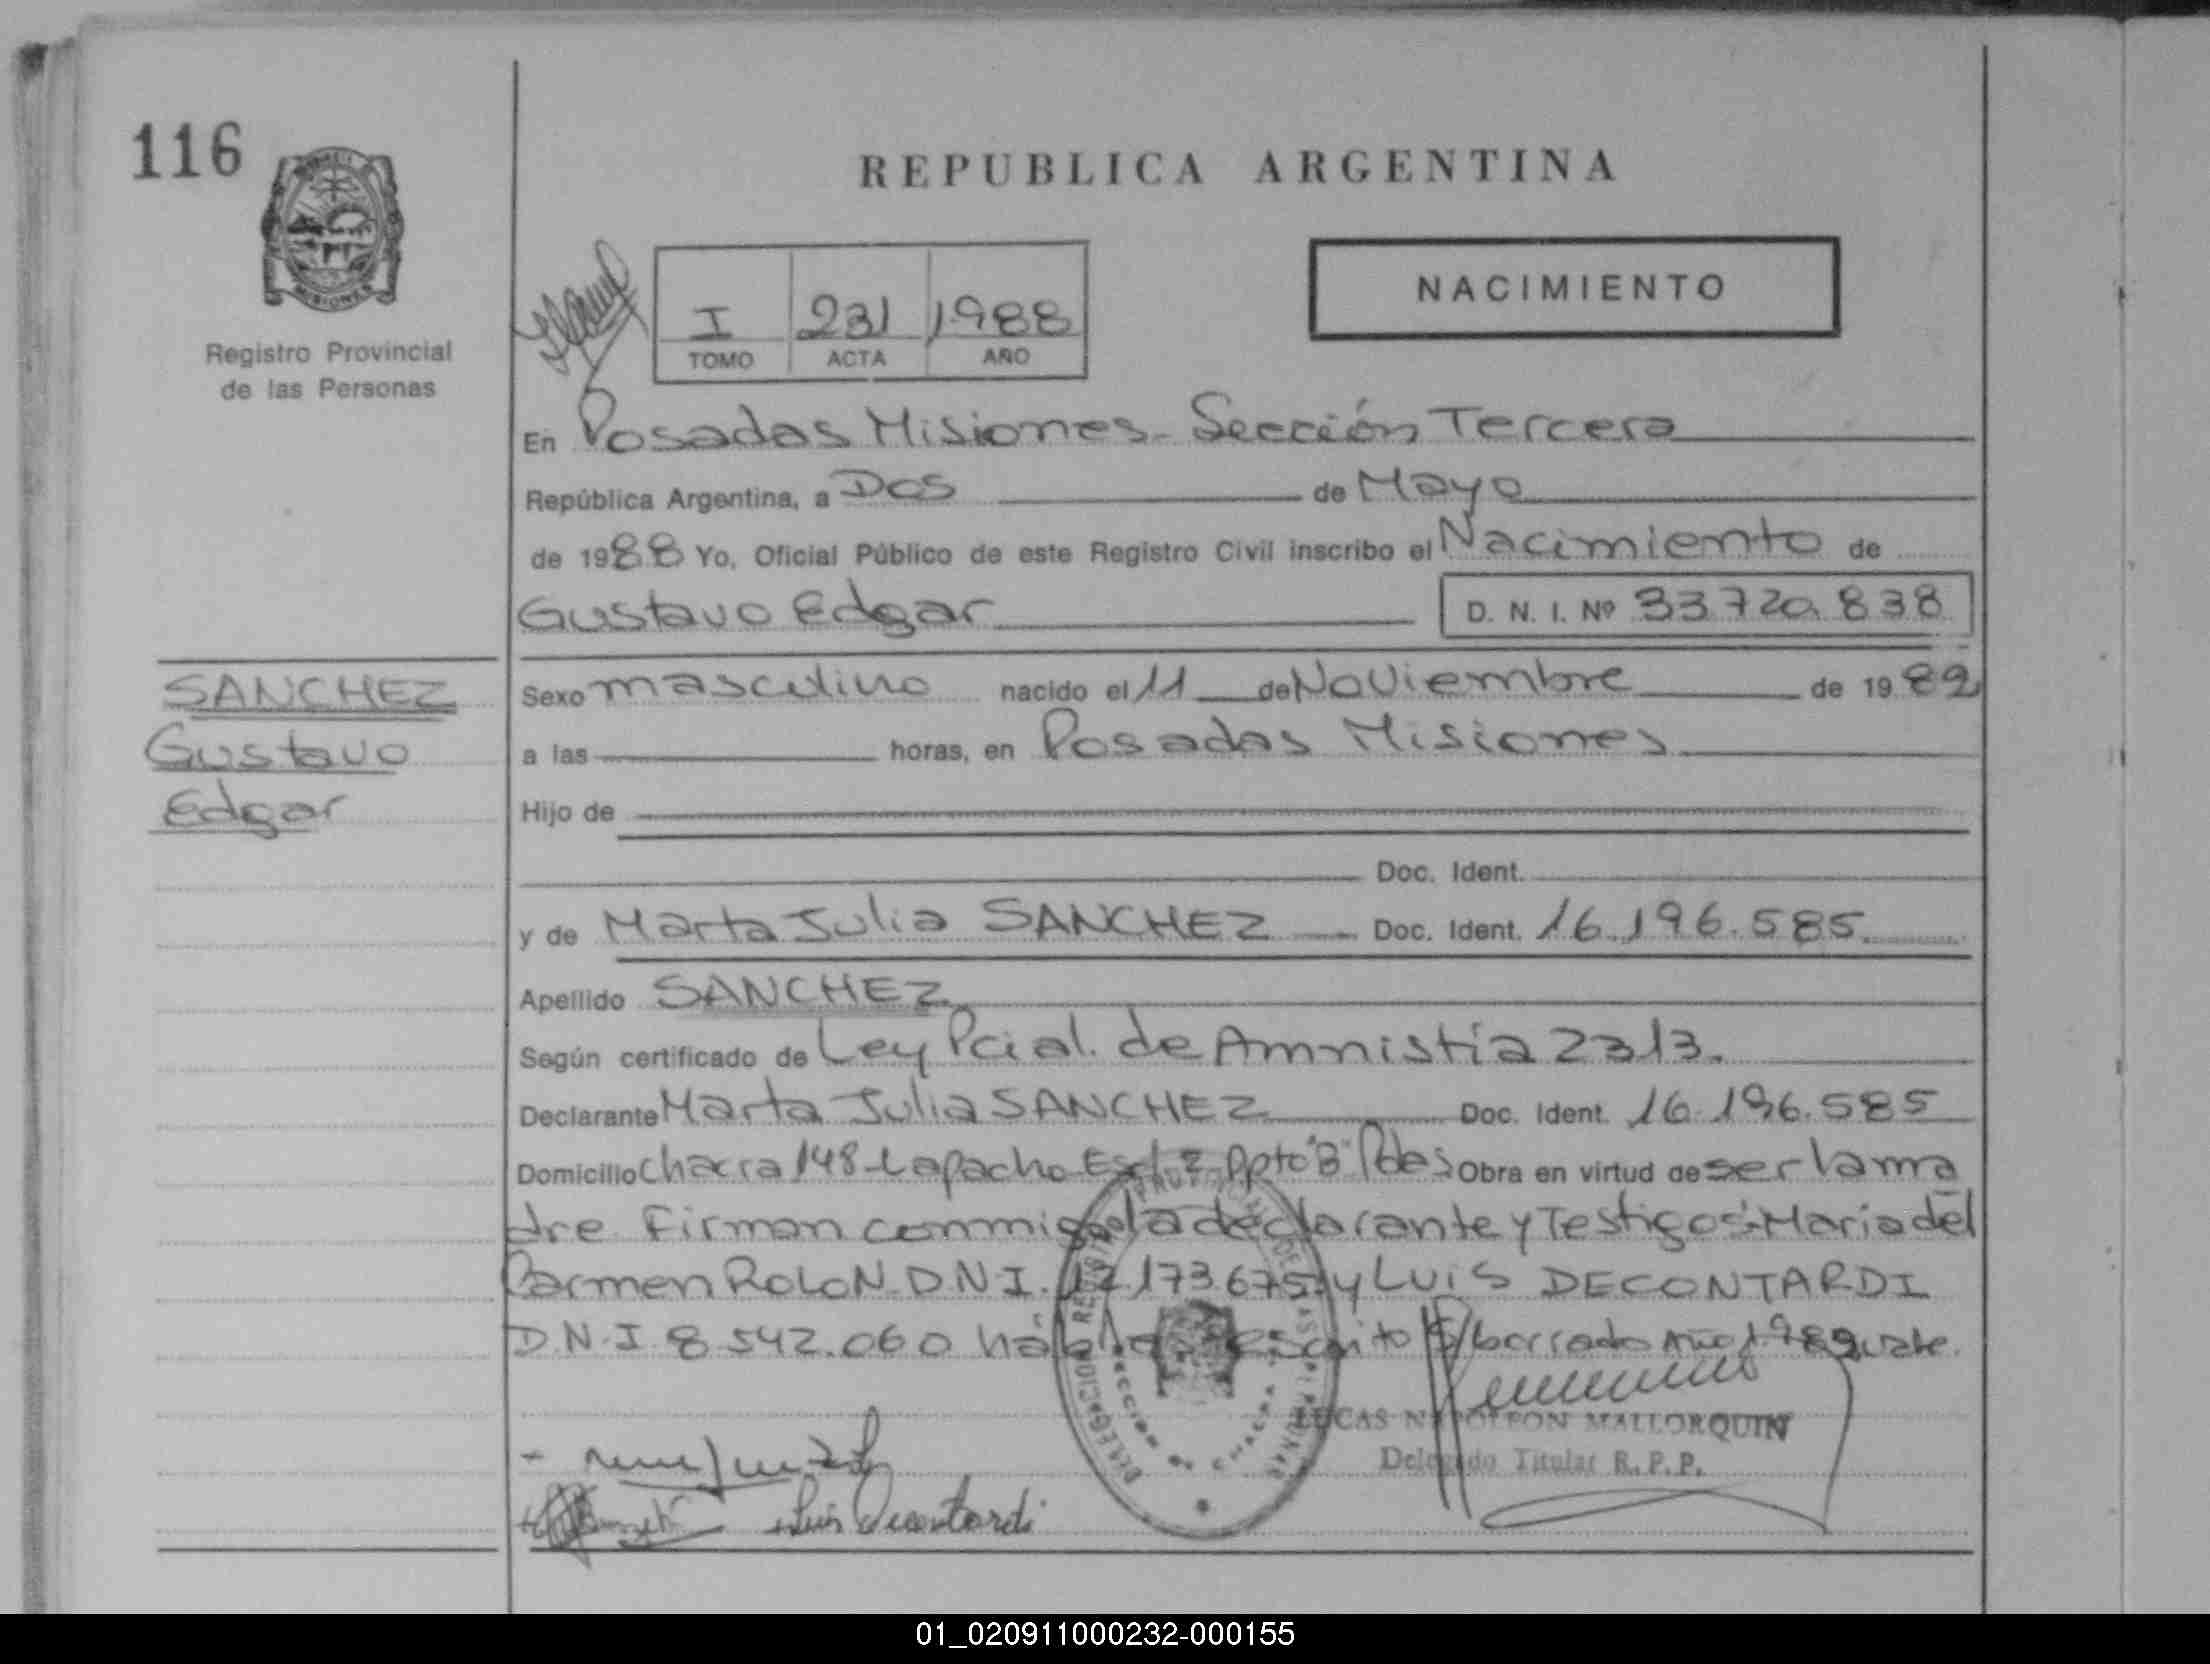 116
REPUBLICA ARGENTINA
MISIONES
Registro Provincial
de las Personas
I 231 1988
TOMO ACTA AÑO
NACIMIENTO
En Posadas Misiones - Sección Tercera
República Argentina, a Dos de Mayo
de 1988 Yo, Oficial Público de este Registro Civil inscribo el Nacimiento de
Gustavo Edgar D. N. I. Nº 33.720.838
SANCHEZ
Gustavo
Edgar
Sexo masculino nacido el 11 de Noviembre de 19
a las horas, en Posadas Misiones
Hijo de
Doc. Ident.
y de Marta Julia SANCHEZ Doc. Ident. 16.196.585
Apellido SANCHEZ
Según certificado de Ley Pcial. de Amnistía 2313.
Declarante Marta Julia SANCHEZ Doc. Ident. 16.196.585
Domicilio Chacra 148 - Lapacho Dpto "B" Pdas Obra en virtud de ser la ma
dre. Firman conmigo la declarante y Testigos: Maria del
Carmen ROLON D.N.I. 173.675 y LUIS DECONTARDI
D.N.I. 8.542.060 S/borrado Año vale.
LUCAS NAPOLEON MALLORQUIN
Delegado Titular R.P.P.
Luis Decontardi
01_020911000232-000155